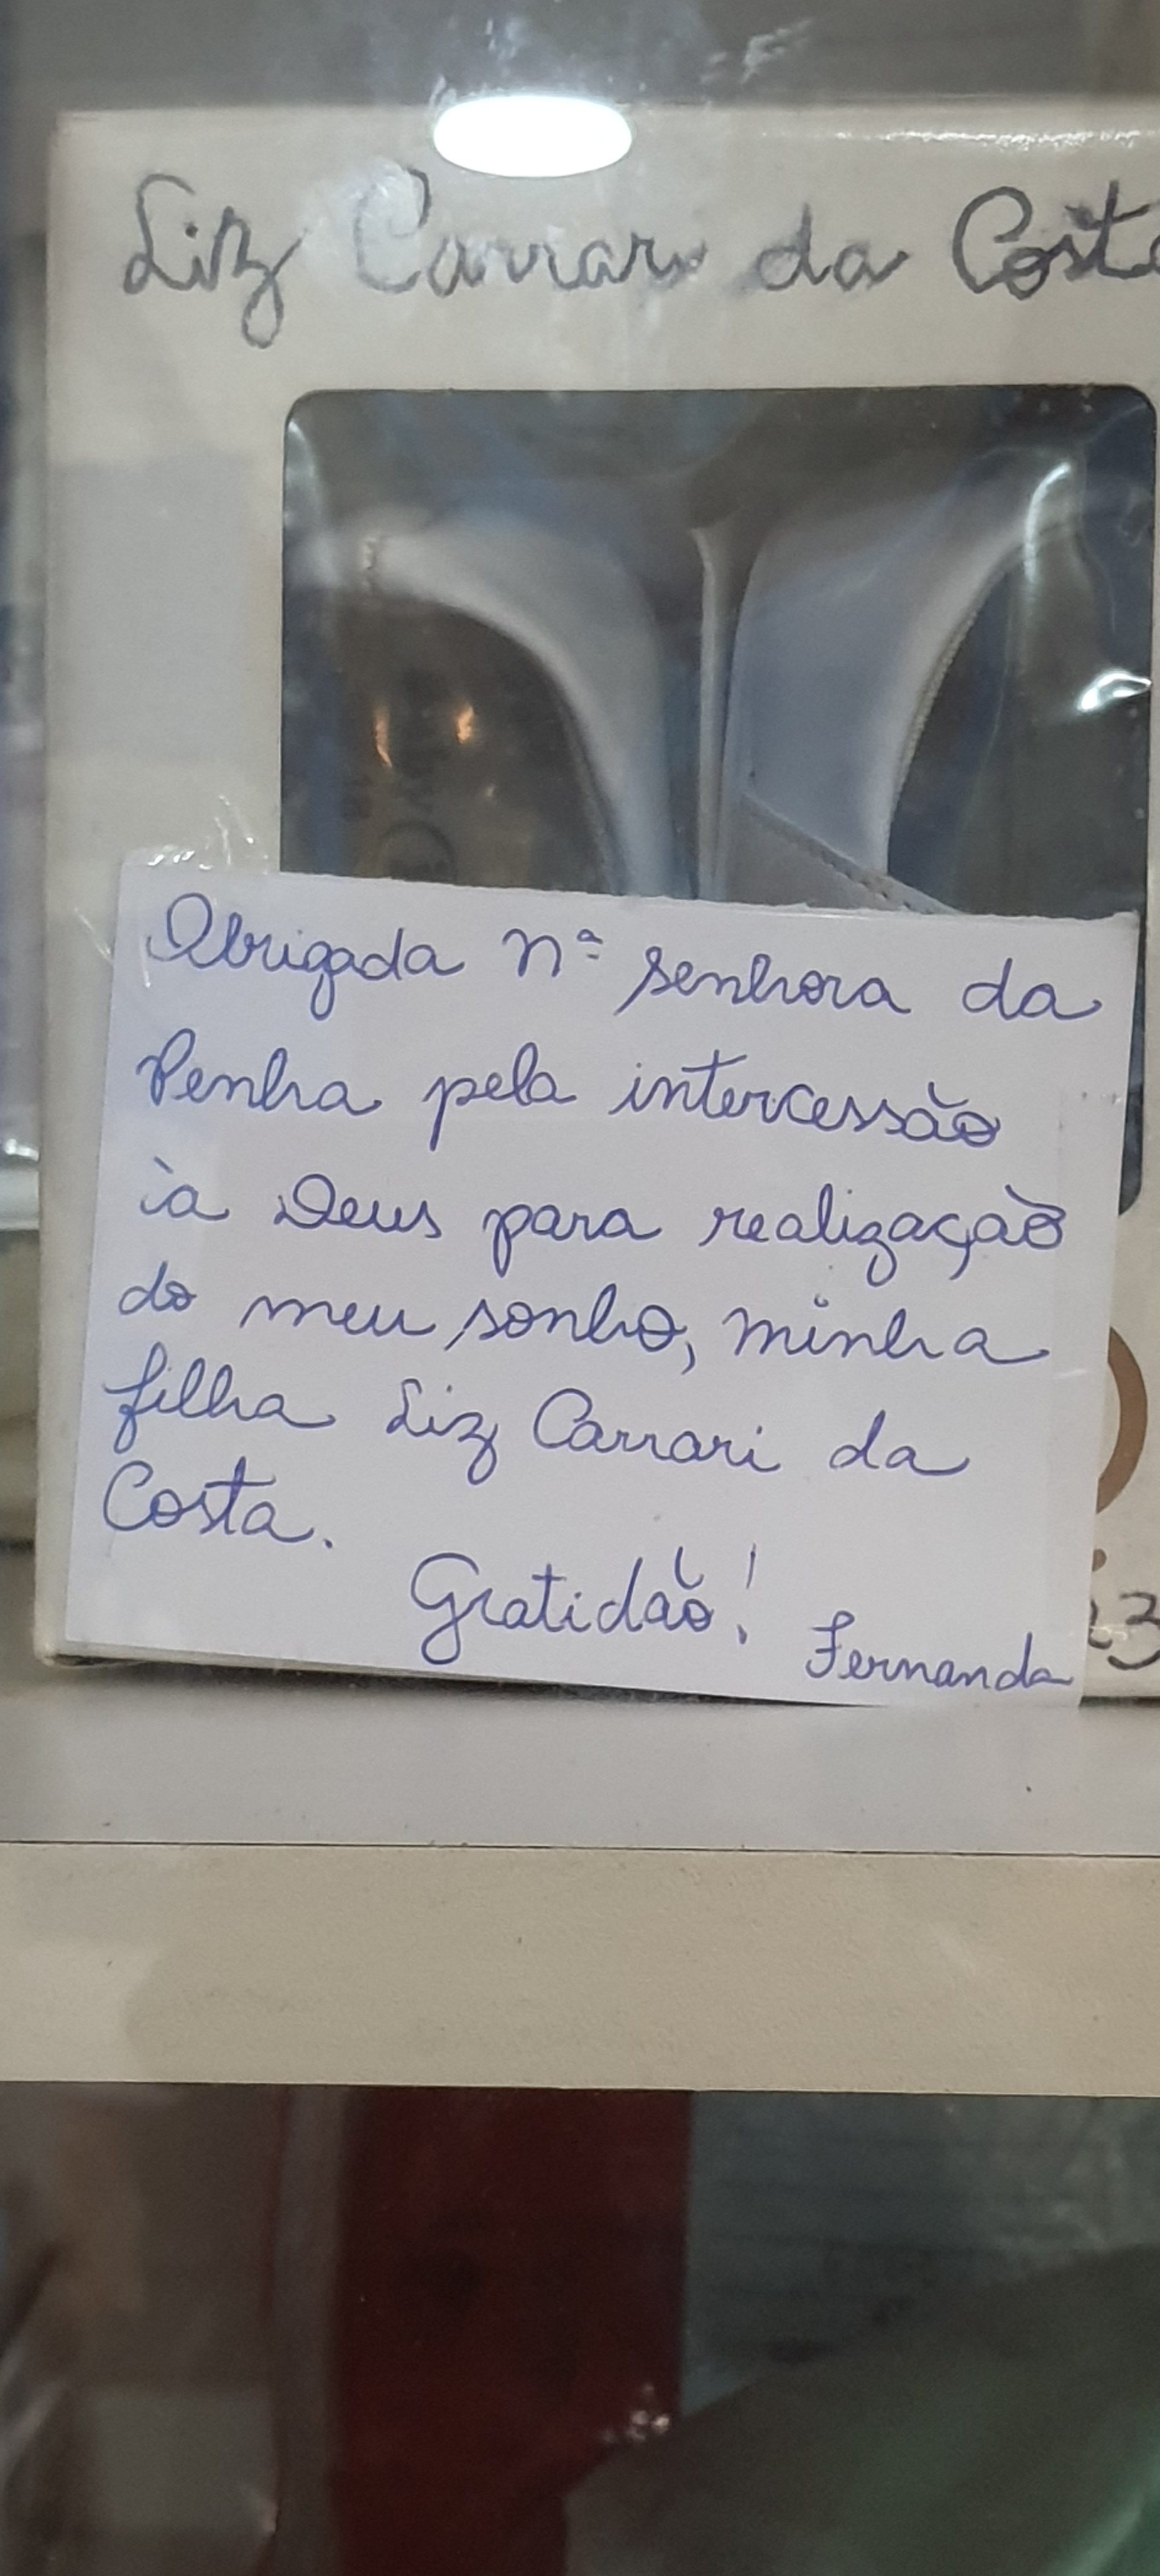 Liz Carrari da Costa
Obrigada nª senhora da
Penha pela intercessão
à Deus para realização
do meu sonho, minha
filha Liz Carrari da
Costa.
Gratidão!
Fernanda